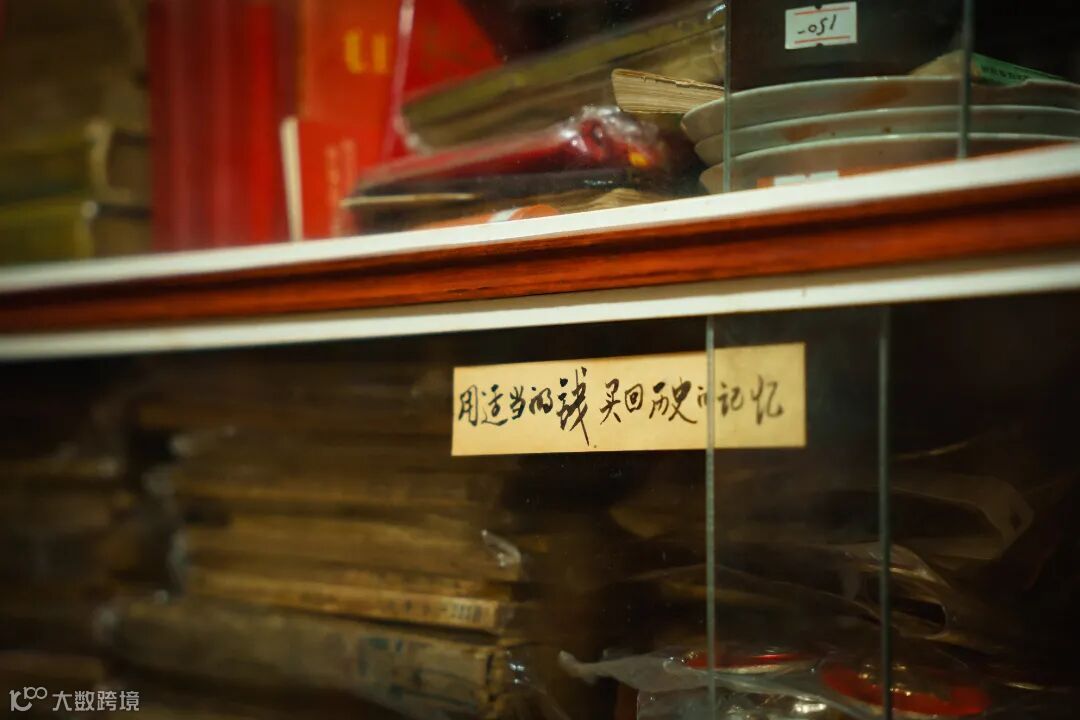 150-
用适当的钱买回历史的记忆
大数跨境